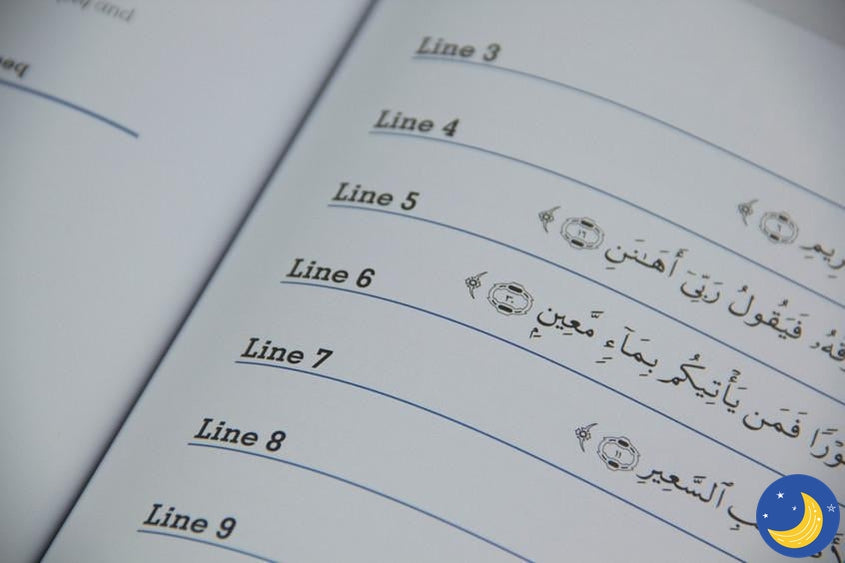 and
Line 3
Line 4 ﴿٦﴾
Line 5 فَيَقُولُ رَبِّىٓ أَهَـٰنَنِ ﴿١٦﴾
Line 6 فَمَن يَأْتِيكُم بِمَآءٍ مَّعِينٍۭ ﴿٣٠﴾
Line 7 ٱلسَّعِيرِ ﴿١١﴾
Line 8
Line 9